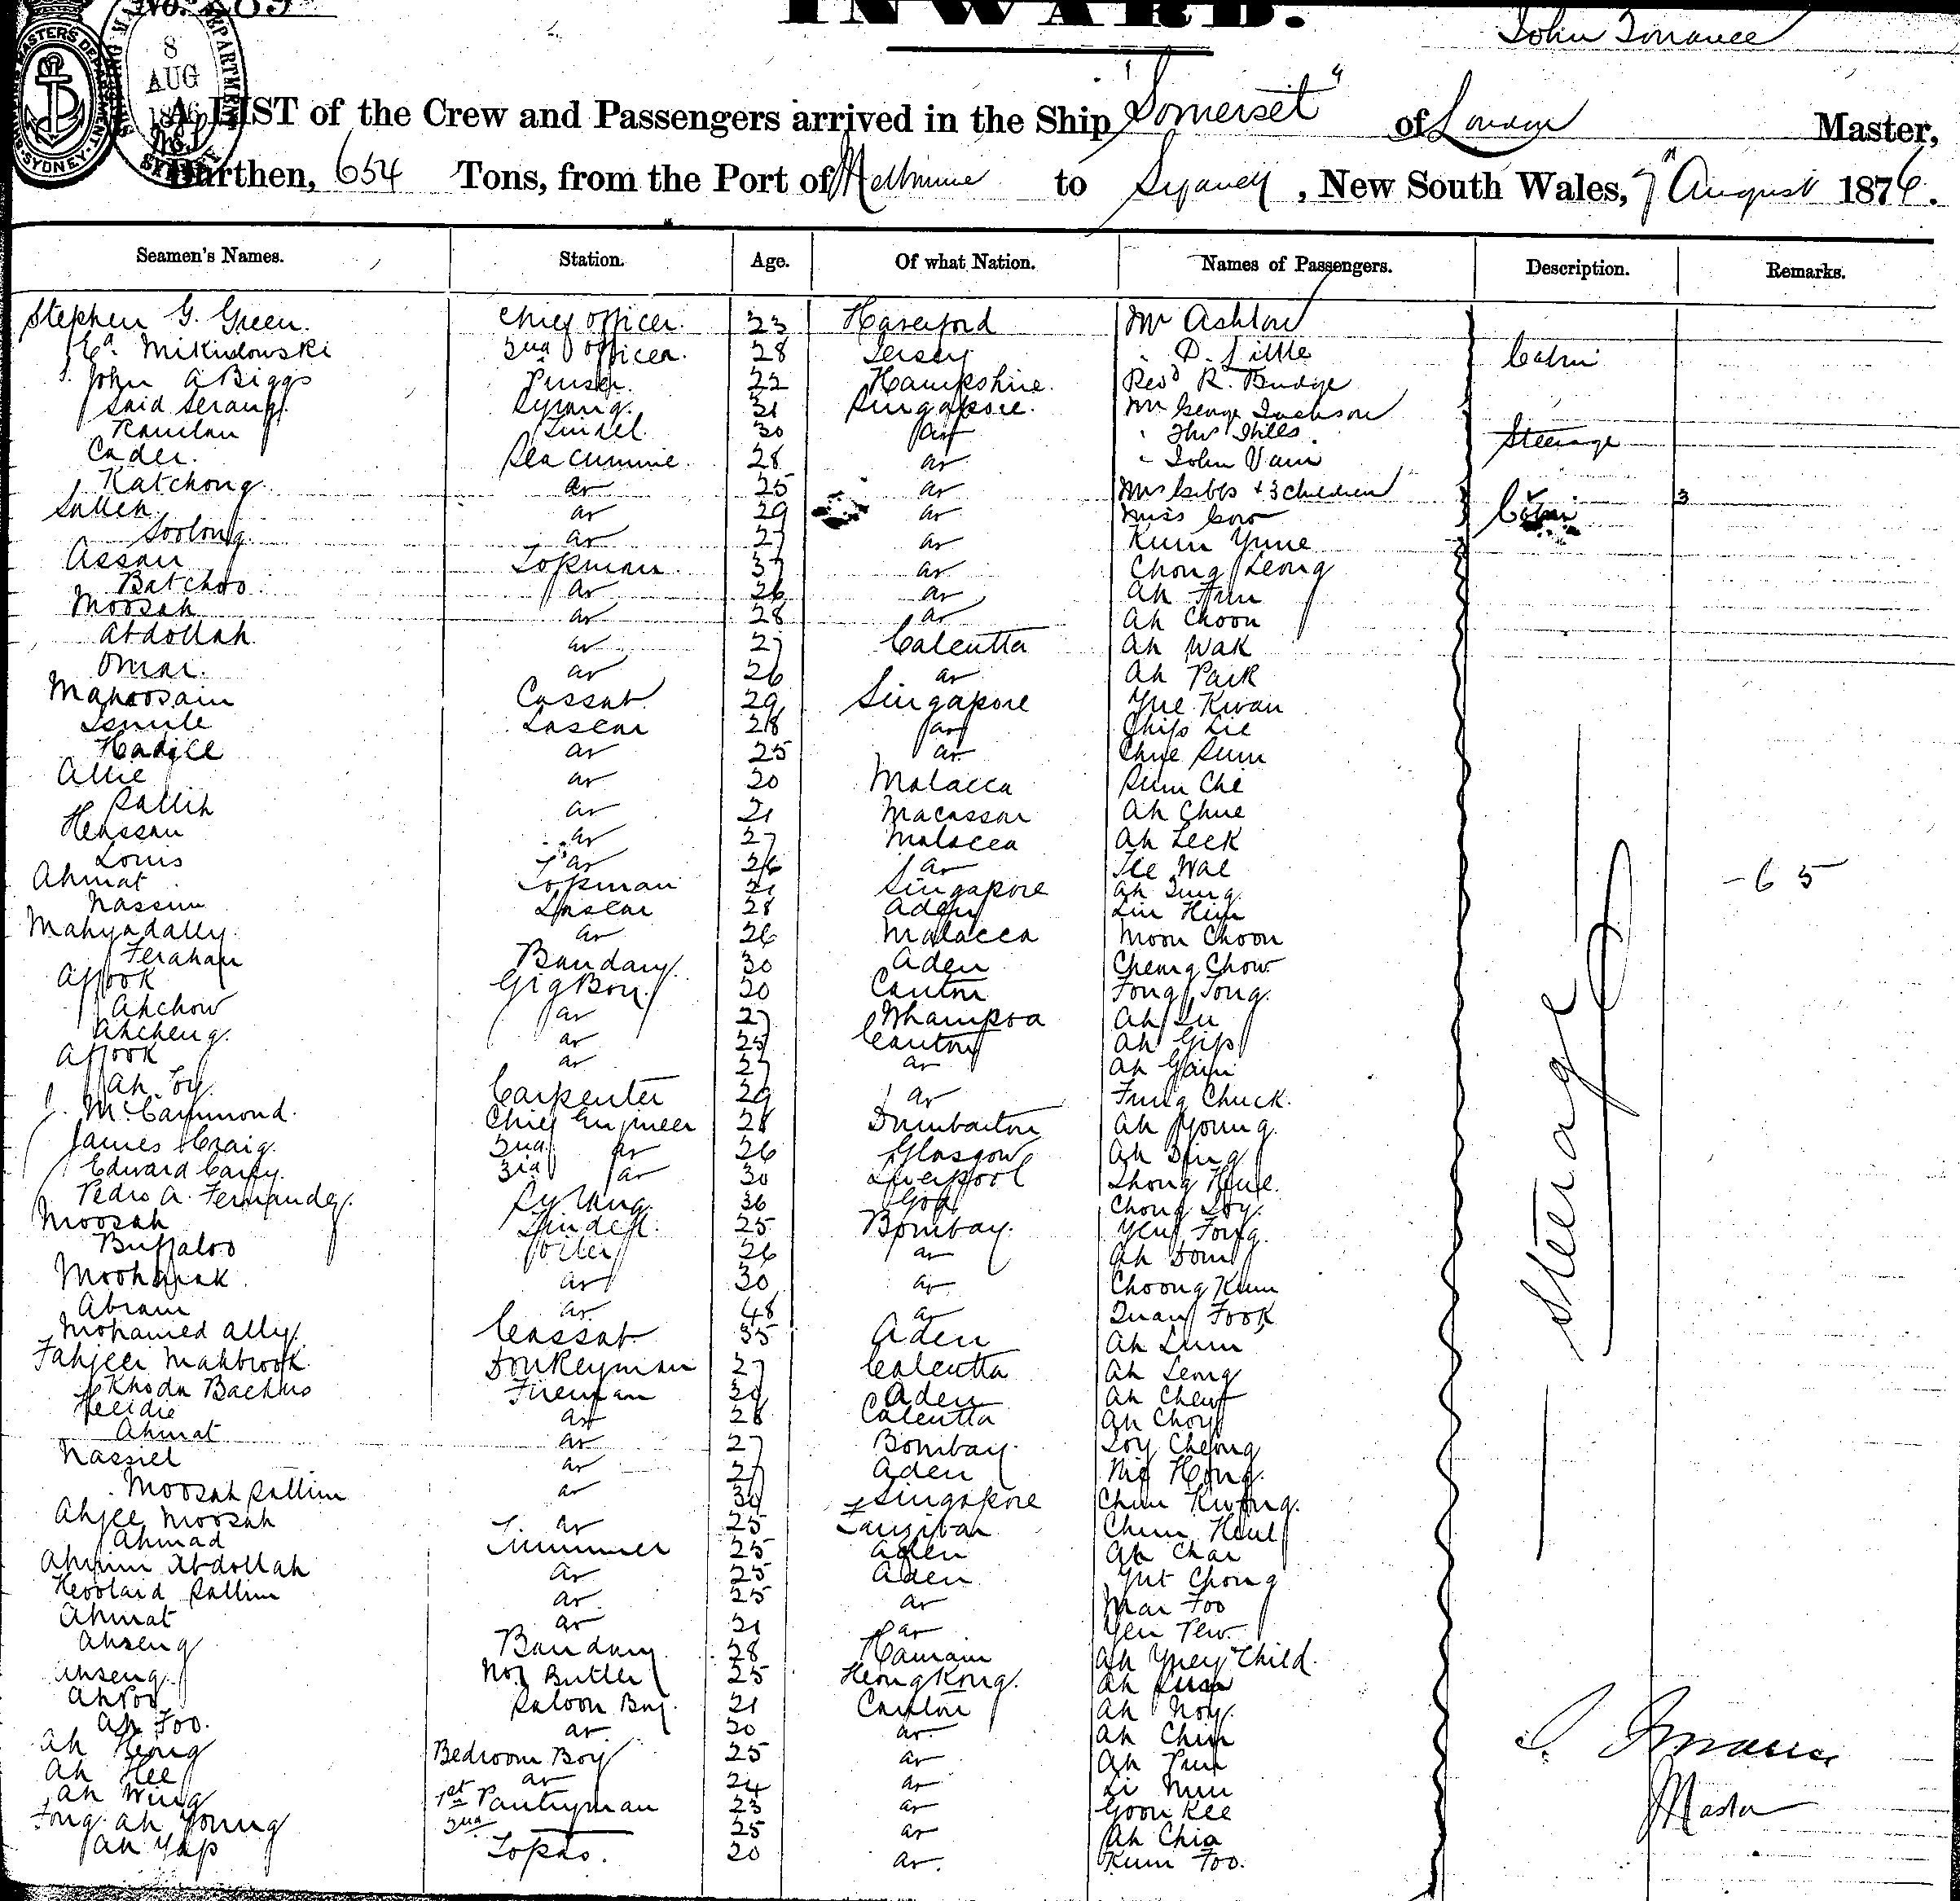 No. 289
INWARD.
John Torrance
MASTERS DEPARTMENT SYDNEY
8 AUG 1876
A LIST of the Crew and Passengers arrived in the Ship "Somerset" of London Master,
Burthen, 654 Tons, from the Port of Melbourne to Sydney, New South Wales, 7th August 1876.
Seamen's Names. Station. Age. Of what Nation. Names of Passengers. Description. Remarks.
Stephen G. Green. Chief Officer. 23 Mr Ashton
Mikidowski 2nd Officer. 28 Jersey " D. Little Cabin
John A Biggs Purser. 22 Hampshire. Revd R. Budge
Said Serang. Syrang. 31 Singapore. Mr George Jackson
Ramlan Tindel. 30 do Steerage
Cader. Sea cunnie. 28 do " John Vain
Katchong. do 25 do Mrs Gibbs + 3 children 3
Salleh do 29 do Miss Cabin
Soolong. do 27 do Kum Yune
Assan Topman. 37 do Chong Leong
Batchoo do 26 do Ah
Moosah do 28 do Ah Choon
Abdollah do 27 Calcutta Ah Wak
Omar. do 26 do Ah Paik
Mahoosain Cassab 29 Singapore Yue Kwan
Ismile Lascar 28 do Lie
Hadjee do 25 do Chue Sum
Allie do 20 Malacca Sum Che
Sallih do 21 Macassar Ah Chue
Hassan do 27 Malacca Ah Leek
Louis do 26 do Wal
Ahmat Topman 21 Singapore Ah
Nassim Lascar 28 Aden
Mahyadally. do 26 Malacca Moon Choon
Ferahan Bandary. 30 Aden Cheng Chow
Affook Gig Boy. 20 Canton Fong Tong.
Ahchow do 27 Whampoa Ah Lu
Ahcheng. do 25 Canton Ah Gip
Affook do 27 do Ah
Ah Toy. Carpenter 29 do Fung Chuck.
McCammond. Chief Engineer 28 Dumbarton Ah Young.
James Craig. 2nd do 26 Glasgow Ah
Edward Carey. 3rd do 30 Liverpool
Pedro A. Fernandez. Syrang. 36 Goa Chong Loy.
Moosah Tindel. 25 Bombay. Fong.
Buffaloo Oiler 26 do Ah
Moobarak. do 30 do Choong Kum
Abram do 48 do Quan Fook
Mohamed Ally. Cassab. 35 Aden Ah Lum
Tahjeer Mahbrook. Donkeyman 27 Calcutta Ah Leong
Khoda Bachus Fireman 30 Aden Ah Chew
do 28 Calcutta Ah Choy
Ahmat do 27 Bombay. Loy Cheong
Nassiel do 27 Aden Hong.
Moosah Sallim do 30 Singapore Chun Kwong.
Ahjee Moosah do 25 Zanzibar Chun
Ahmad Trimmer 25 Aden Ah Char
Ahmin Abdollah do 25 Aden Yut Chong
Sallim do 25 do Mai Foo
Ahmat do 21 do
Ahseng Bandary 28 Ah Child.
Ahseng. Butler 25 Hong Kong. Ah
Saloon Boy. 21 Canton Ah Noy.
Ah Foo. do 20 do Ah Chin
Ah Heong Bedroom Boy 25 do Ah
Ah Hee do 24 do Li
Ah Wing 1st Pantryman 23 do Goon Kee
Fong Ah Young 2nd 25 do Ah Chia
Ah Yap Topas. 20 do Kum Foo.
Steerage
- 65
J. Torrance
Master